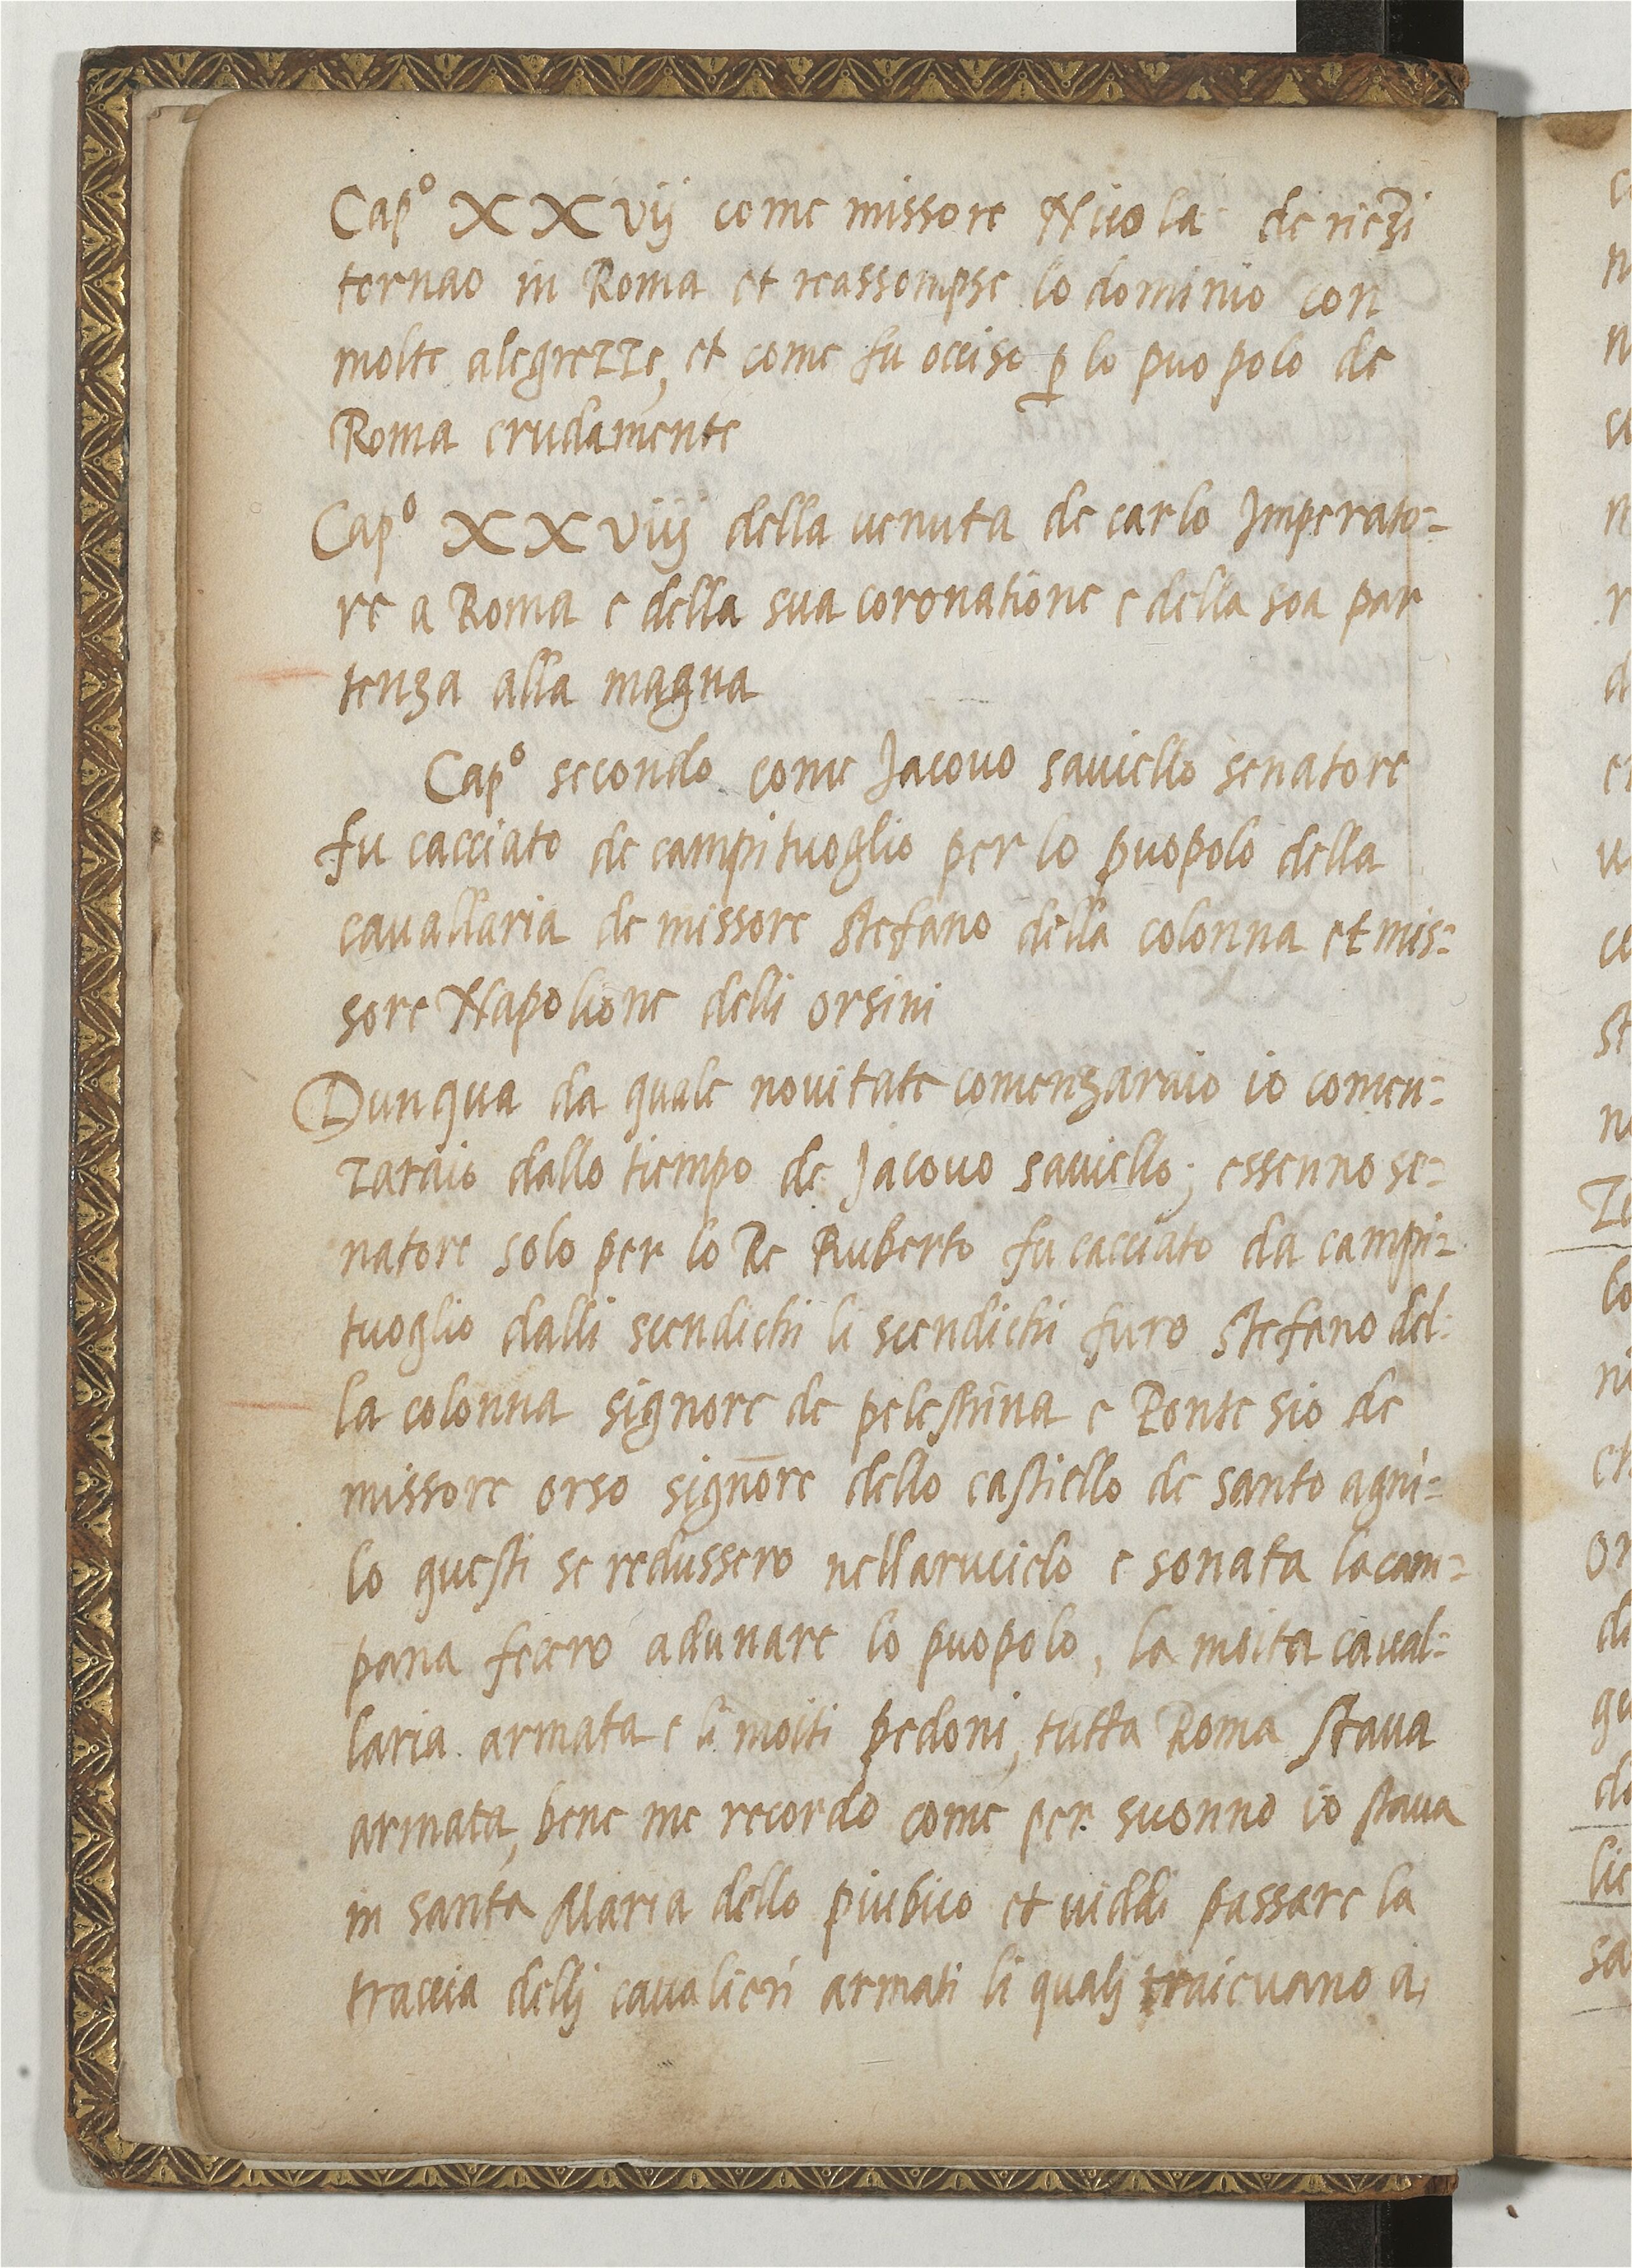 Capº XXVij come missore Nicola de rienzi
tornao in Roma et reassompse lo dominio con
molte alegrezze, et come fu occiso ꝑ lo puopolo de
Roma crudamente
Capº XXViij della venuta de carlo Imperato=
re a Roma e della sua coronatione e della soa par
tenza alla magna
Capº secondo come Jacovo saviello senatore
fu cacciato de campituoglio per lo puopolo della
cavallaria de missore stefano della colonna et mis=
sore Napolione delli orsini
Dunqua da quale novitate comenzaraio io comen=
zaraio dallo tiempo de Jacovo saviello; essenno se=
natore solo per lo Re Ruberto fu cacciato da campi=
tuoglio dalli scendichi li scendichi furo stefano del=
la colonna signore de pelestrina e Ponte sio de
missore orso signore dello castiello de santo agni=
lo questi se redussero nellarucielo e sonata la cam=
pana fecero adunare lo puopolo, la moita caval=
laria armata e li moiti pedoni, tutta Roma stava
armata, bene me recordo come per suonno io stava
in santa Maria dello piubico et viddi passare la
traccia dellj cavalieri armati li qualj traievano a